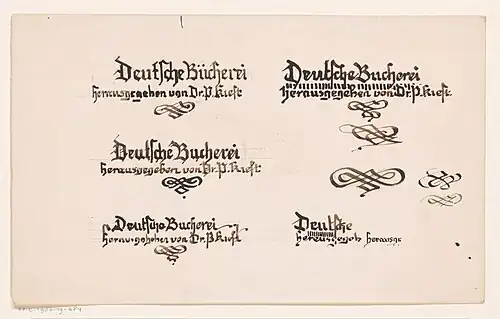 Deutsche Bücherei
herausgegeben von Dr. P. Kieft
Deutsche Bucherei
herausgegeben von Dr. P. Kieft.
Deutsche Bucherei
herausgegeben von Dr. P. Kieft
Deutsche Bucherei
herausgegeben von Dr. P. Kieft
Deutsche
herausgegeb herausge